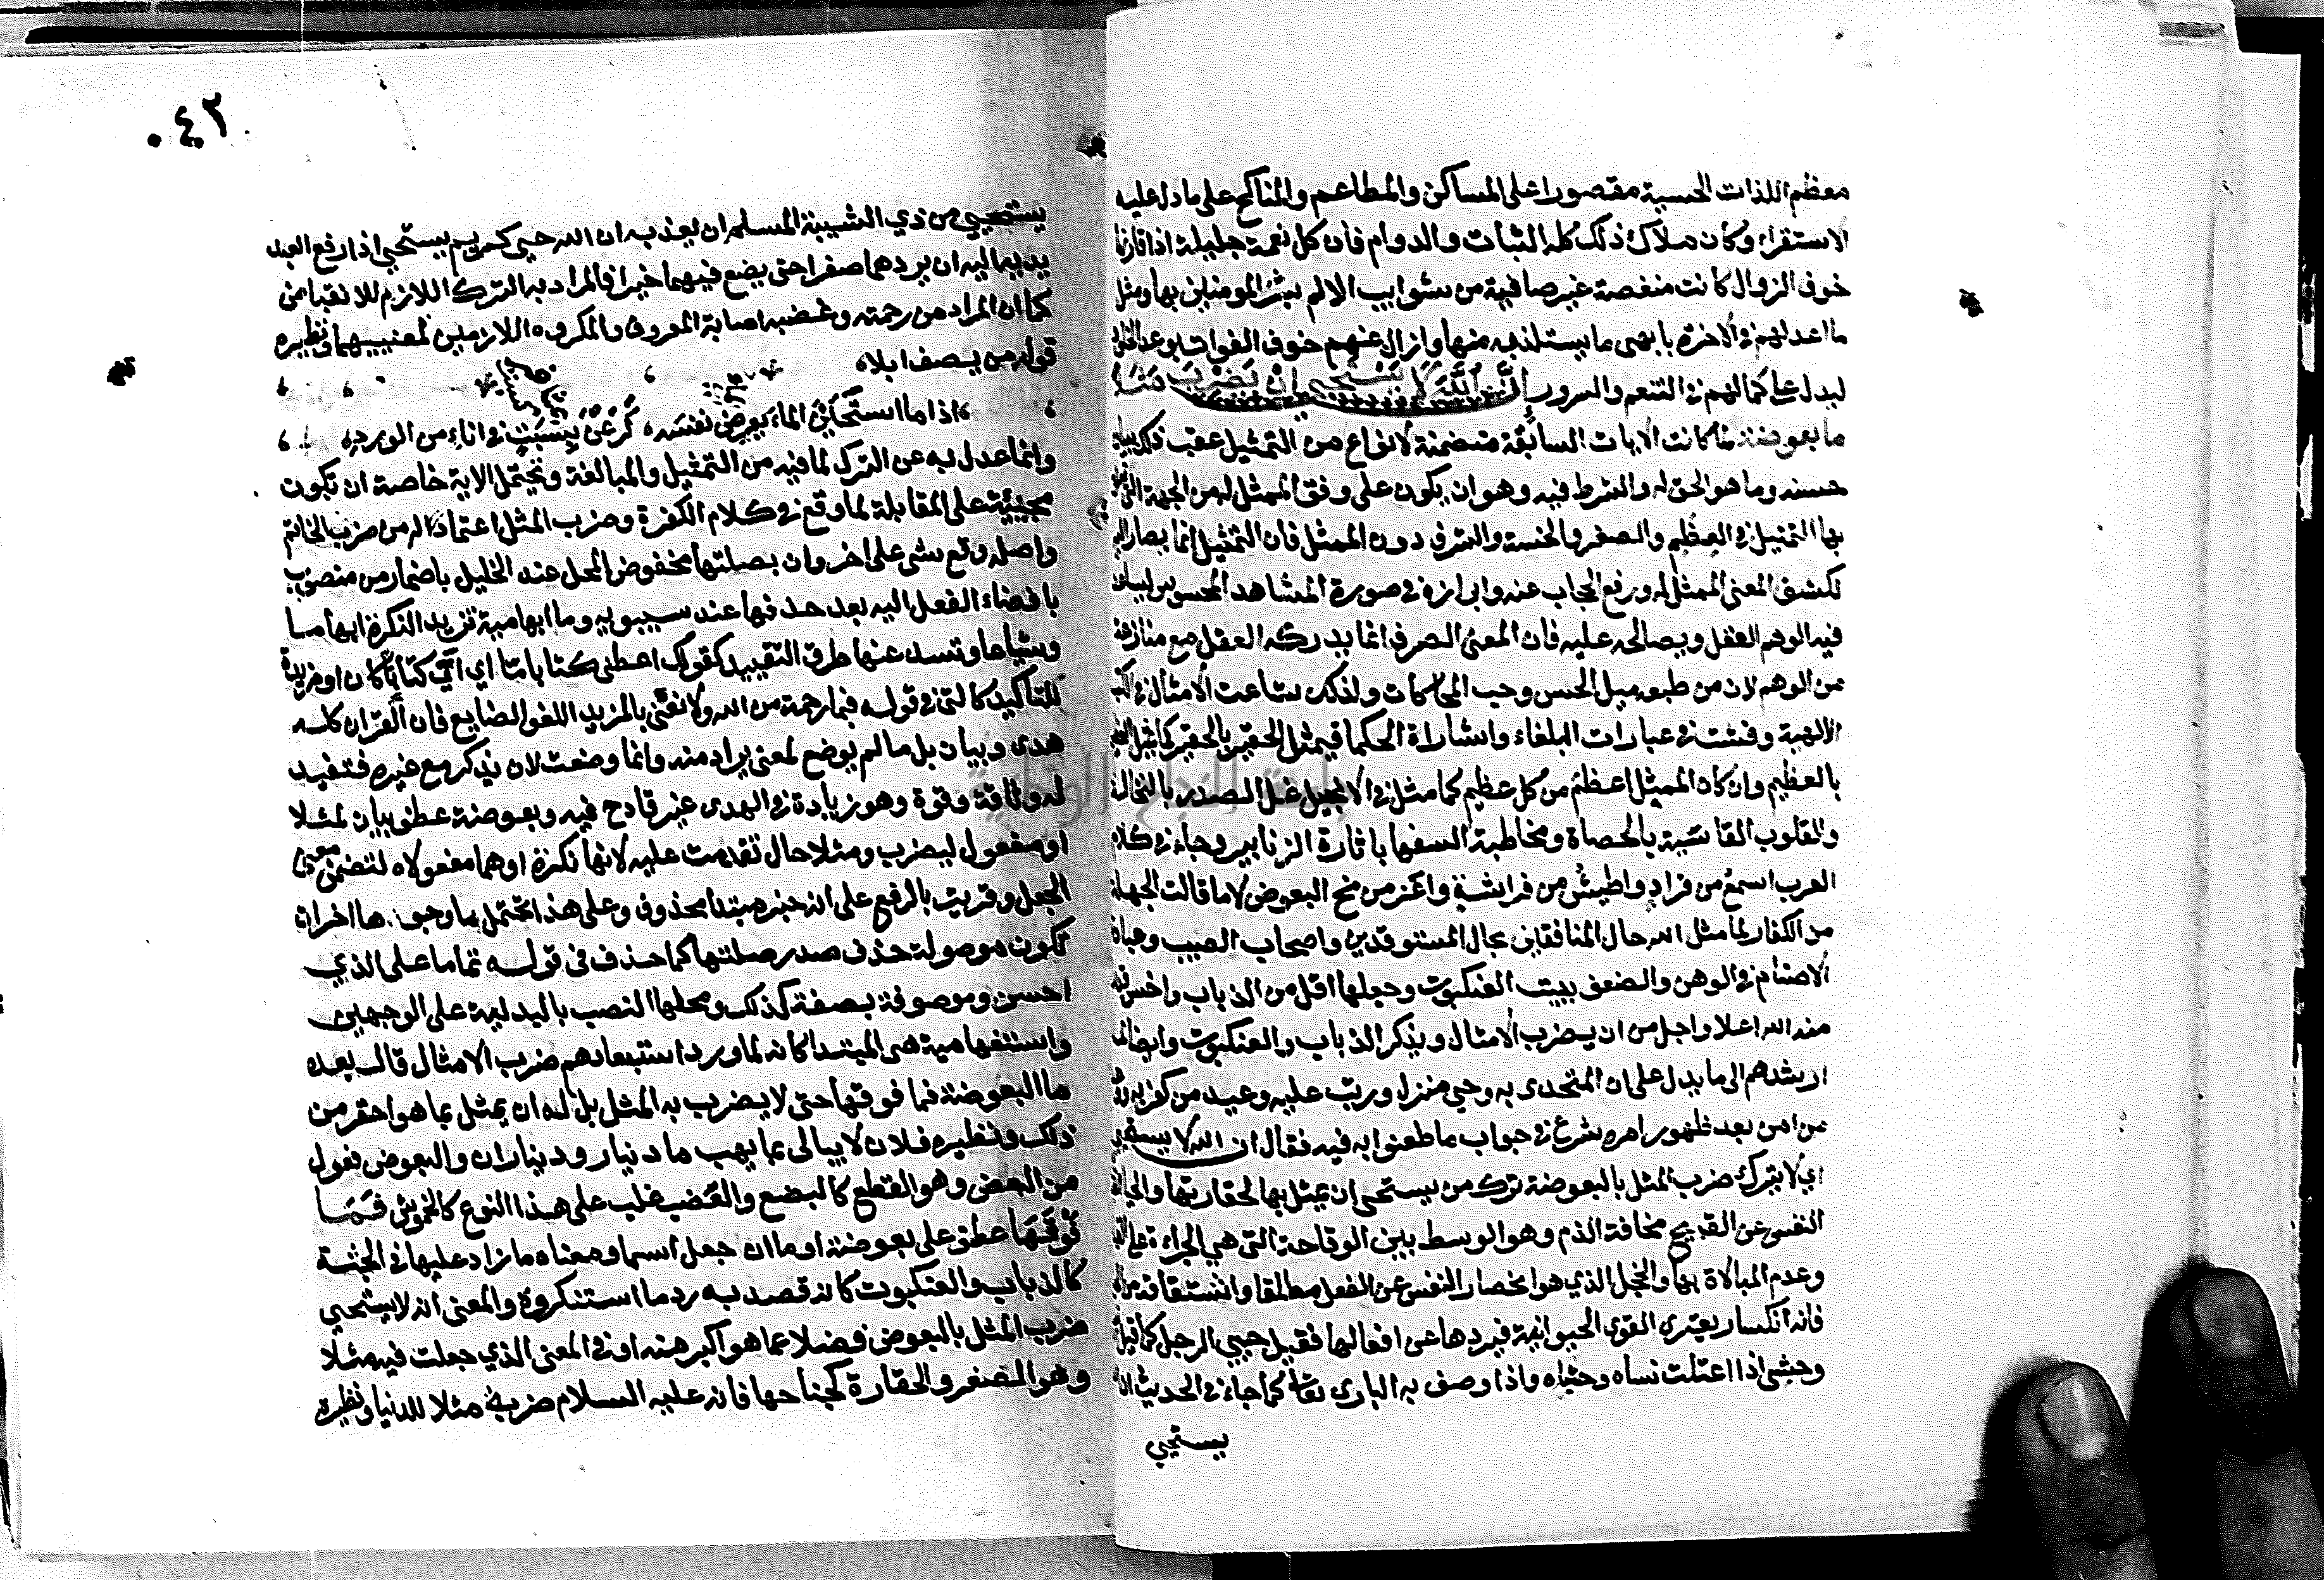 معظم اللذات الحسية مقصورا على المساكن والمطاعم والمناكح على ما دل عليه
الاستقراء وكان ملاك ذلك كله الثبات والدوام فان كل نعمة جليلة اذا قارنها
خوف الزوال كانت منغصة غير صافية من شوايب الالم بشر المومنين بها ومثل
ما اعد لهم في الاخرة بابهى ما يستلذ به منها وازال عنهم خوف الفوات بوعد الخلود
ليدل على كمالهم في التنعم والسرور إن الله لا يستحيي ان يضرب مثلا
ما بعوضة لما كانت الايات السابقة متضمنة لانواع من التمثيل عقب ذلك ببيان
حسنه وما هو الحق له والشرط فيه وهو ان يكون على وفق الممثل له من الجهة التي تعلق
بها التمثيل في العظم والصغر والخسة والشرف دون الممثل فان التمثيل انما يصار اليه
لكشف المعنى الممثل له ورفع الحجاب عنه وابرازه في صورة المشاهد المحسوس ليساعد
فيه الوهم العقل ويصالحه عليه فان المعنى الصرف انما يدركه العقل مع منازعة
من الوهم لان من طبعه ميل الحس وحب المحاكات ولذلك شاعت الامثال في الكتب
الالهية وفشت في عبارات البلغاء واشاراة الحكما فيمثل الحقير بالحقير كما يمثل العظيم
بالعظيم وان كان الممثل اعظم من كل عظيم كما مثل في الانجيل غل الصدر بالنخالة
والقلوب القاسية بالحصاة ومخاطبة السفها باثارة الزنابير وجاء في كلام
العرب اسمع من قراد واطيش من فراشة واعز من مخ البعوض لا ما قالت الجهلة
من الكفار لما مثل الله حال المنافقين بحال المستوقدين واصحاب الصيب وعبادة
الاصنام في الوهن والضعف ببيت العنكبوت وجعلها اقل من الذباب واخس قدرا
منه الله اعلا واجل من ان يضرب الامثال ويذكر الذباب والعنكبوت وايضا لما
ارشدهم الى ما يدل على ان المتحدى به وحي منزل ورتب عليه وعيد من كفر به ووعد
من امن بعد ظهور امره شرع في جواب ما طعنوا به فيه فقال ان الله لا يستحيي
اي لا يترك ضرب المثل بالبعوضة ترك من يستحي ان يمثل بها لحقارتها والحيا انقباض
النفس عن القبيح مخافة الذم وهو الوسط بين الوقاحة التي هي الجراءة على القبايح
وعدم المبالاة بها والخجل الذي هو انحصار النفس عن الفعل مطلقا واشتقاقه من الحياة
فانه انكسار يعتري القوى الحيوانية فيردها عن افعالها فقيل حيي الرجل كما قيل نسي
وحشي اذا اعتلت نساه وحشاه واذا وصف به الباري تعالى كما جاء في الحديث ان الله
يستحيي
٠٤٢
يستحيي من ذي الشيبة المسلم ان يعذبه ان الله حيي كريم يستحيي اذا رفع العبد
يديه اليه ان يردهما صفرا حتى يضع فيهما خيرا فالمراد به الترك اللازم للانقباض
كما ان المراد من رحمته وغضبه اصابة المعروف والمكروه اللازمين لمعنييهما ونظيره
قوله من يصف ابلا
اذا ما استحين الماء يعرض نفسه كرعن بسبت في اناء من الورد
وانما عدل به عن الترك لما فيه من التمثيل والمبالغة وتحتمل الاية خاصة ان تكون
مجيئه على المقابلة لما وقع في كلام الكفرة وضرب المثل اعتماده من ضرب الخاتم
واصله وقع شي على اخر وان بصلتها مخفوض المحل عند الخليل باضمار من منصوب
بافضاء الفعل اليه بعد حذفها عند سيبويه وما ابهامية تزيد النكرة ابهاما
وشياعا وتسد عنها طرق التقييد كقولك اعطني كتابا ما اي اي كتابا كان او مزيدة
للتاكيد كالتي في قوله فبما رحمة من الله ولا نعني بالمزيد اللغو الضايع فان القران كله
هدى وبيان بل ما لم يوضع لمعنى يراد منه وانما وضعت لان يذكر مع غيره فتفيد
له وثاقة وقوة وهو زيادة في الهدى غير قادح فيه وبعوضة عطف بيان لمثلا
او مفعول ليضرب ومثلا حال تقدمت عليه لانها نكرة او هما مفعولاه لتضمنه معنى
الجعل وقريت بالرفع على انه خبر مبتدا محذوف وعلى هذا يحتمل ما وجوها اخر ان
تكون موصولة حذف صدر صلتها كما حذف في قوله تماما على الذي
احسن وموصوفة بصفة كذلك ومحلها النصب بالبدلية على الوجهين
واستفهامية هي المبتدا كانه لما ورد استبعادهم ضرب الامثال قال بعده
ما البعوضة فما فوقها حتى لا يضرب به المثل بل له ان يمثل بما هو احقر من
ذلك ونظيره فلان لا يبالى بما يهب ما دينار وديناران والبعوض فعول
من البعض وهو القطع كالبضع والعضب غلب على هذا النوع كالخموش فما
فوقها عطف على بعوضة او ما ان جعل اسما ومعناه ما زاد عليها في الجثة
كالذباب والعنكبوت كانه قصد به رد ما استنكروه والمعنى انه لا يستحيي
ضرب المثل بالبعوض فضلا عما هو اكبر منه او في المعنى الذي جعلت فيه مثلا
وهو الصغر والحقارة كجناحها فانه عليه السلام ضربه مثلا للدنيا ونظيره